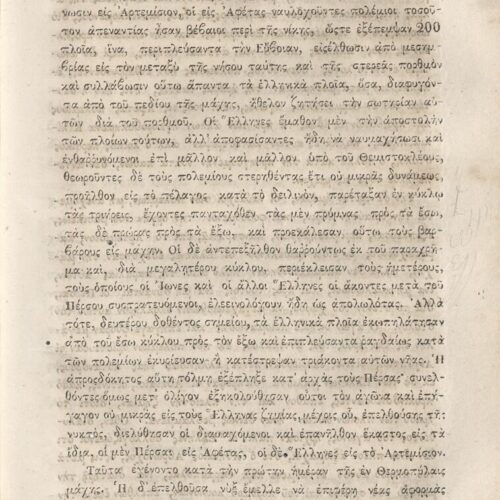 νωσιν εἰς Ἀρτεμίσιον, οἱ εἰς Ἀφέτας ναυλοχοῦντες πολέμιοι τοσοῦ-
τον ἀπεναντίας ἦσαν βέβαιοι περὶ τῆς νίκης, ὥστε ἐξέπεμψαν 200
πλοῖα, ἵνα, περιπλεύσαντα τὴν Εὔβοιαν, εἰσέλθωσιν ἀπὸ μεσημ-
βρίας εἰς τὸν μεταξὺ τῆς νήσου ταύτης καὶ τῆς στερεᾶς πορθμὸν
καὶ συλλάβωσιν οὕτω ἅπαντα τὰ ἑλληνικὰ πλοῖα, ὅσα, διαφυγόν-
τα ἀπὸ τοῦ πεδίου τῆς μάχης, ἤθελον ζητήσει τὴν σωτηρίαν αὑ-
τῶν διὰ τοῦ πορθμοῦ. Οἱ Ἕλληνες ἔμαθον μὲν τὴν ἀποστολὴν
τῶν πλοίων τούτων, ἀλλ' ἀποφασίσαντες ἤδη νὰ ναυμαχήσωσι καὶ
ἐνθαῤῥυνόμενοι ἐπὶ μᾶλλον καὶ μᾶλλον ὑπὸ τοῦ Θεμιστοκλέους,
θεωροῦντες δὲ τοὺς πολεμίους στερηθέντας ἔτι οὐ μικρᾶς δυνάμεως,
προῆλθον εἰς τὸ πέλαγος κατὰ τὸ δειλινὸν, παρέταξαν ἐν κύκλῳ
τὰς τριήρεις, ἔχοντες πανταχόθεν τὰς μὲν πρύμνας πρὸς τὰ ἔσω,
τὰς δὲ πρώρας πρὸς τὰ ἔξω, καὶ προεκάλεσαν οὕτω τοὺς βαρ-
βάρους εἰς μάχην. Οἱ δὲ ἀντεπεξῆλθον θαῤῥούντως ἐκ τοῦ παραχρῆ-
μα καὶ, διὰ μεγαλητέρου κύκλου, περιέκλεισαν τοὺς ἡμετέρους,
τοὺς ὁποίους οἱ Ἴωνες καὶ οἱ ἄλλοι Ἕλληνες οἱ ἄκοντες μετὰ τοῦ
Πέρσου συστρατευόμενοι, ἐλεεινολόγουν ἤδη ὡς ἀπολωλότας. Ἀλλὰ
τότε, δευτέρου δοθέντος σημείου, τὰ ἑλληνικὰ πλοῖα ἐκωπηλάτησαν
ἀπὸ τοῦ ἔσω κύκλου πρὸς τὸν ἔξω καὶ ἐπιπλεύσαντα ῥαγδαίως κατὰ
τῶν πολεμίων ἐκυρίευσαν ἢ κατέστρεψαν τριάκοντα αὐτῶν νῆας. Ἡ
ἀπροσδόκητος αὕτη τόλμη ἐξέπληξε κατ' ἀρχὰς τοὺς Πέρσας· συνελ-
θόντες ὅμως μετ' ὀλίγον ἐξηκολούθησαν οὗτοι τὸν ἀγῶνα καὶ ἐπή-
γαγον οὐ μικρὰς εἰς τοὺς Ἕλληνας ζημίας, μέχρις οὗ, ἐπελθούσης τῆς
νυκτὸς, διελύθησαν οἱ διαμαχόμενοι καὶ ἐπανῆλθον ἕκαστος εἰς τὰ
ἴδια, οἱ μὲν Πέρσαι εἰς Ἀφέτας, οἱ δὲ Ἕλληνες εἰς τὸ Ἀρτεμίσιον.
Ταῦτα ἐγένοντο κατὰ τὴν πρώτην ἡμέραν τῆς ἐν Θερμοπύλαις
μάχης. Ἡ δ' ἐπελθοῦσα νὺξ ἔμελλε νὰ ἐπιφέρῃ νέας ἀφορμὰς